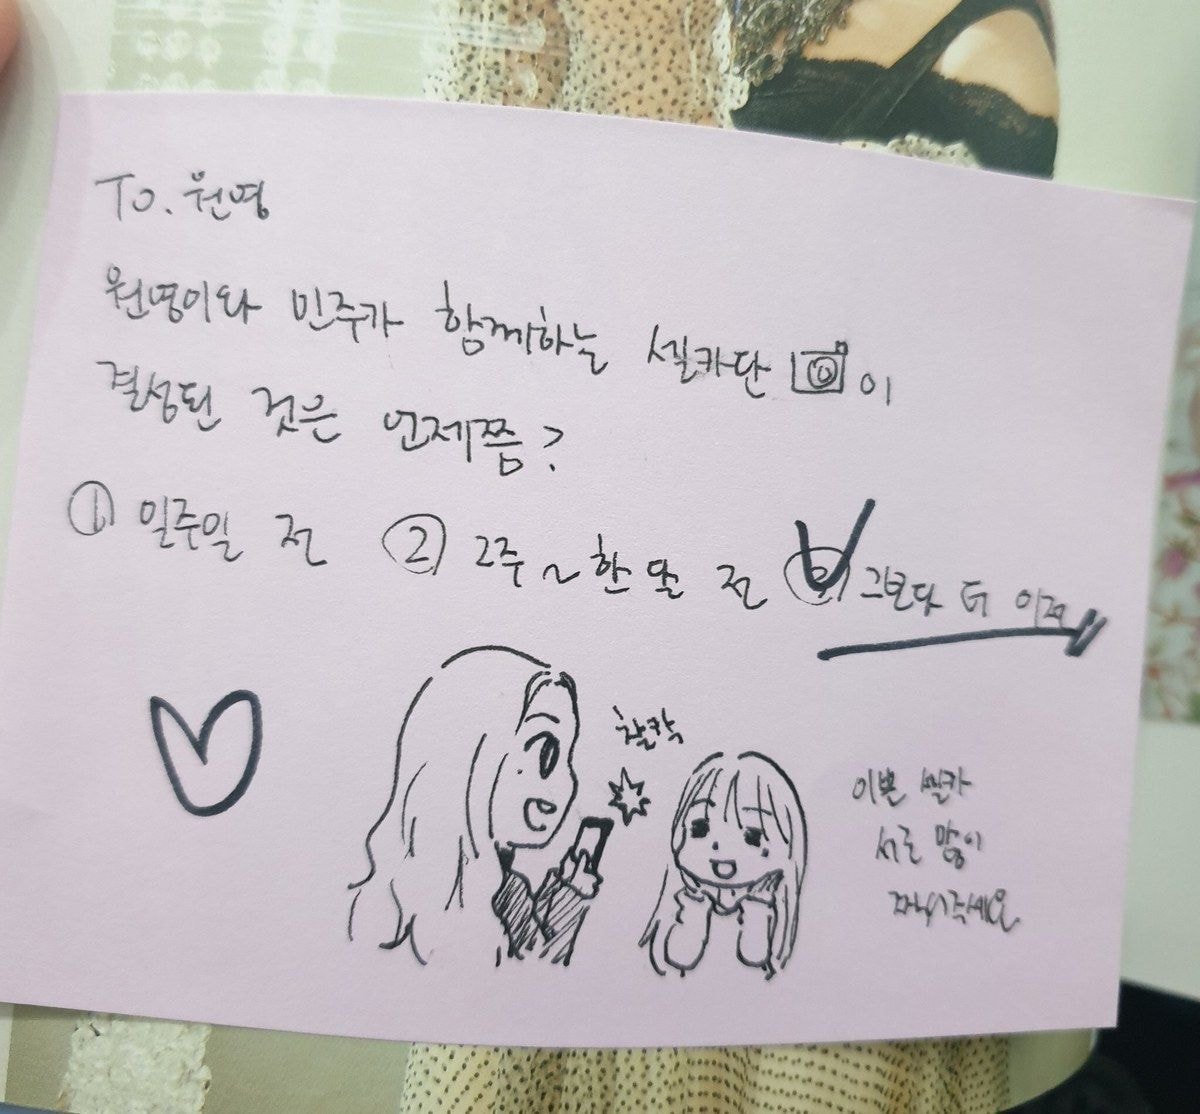 To. 원영
원영이와 민주가 함께하는 셀카단 이
결성된 것은 언제쯤?
① 일주일 전 ② 2주~한 달 전 ③ 그보다 더 이전
찰칵
이쁜 셀카
서로 많이
찍어주세요